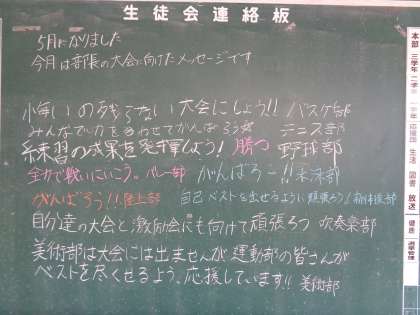 生徒会連絡板
5月になりました
今月は部長の大会に向けたメッセージです
悔いの残らない大会にしよう!! バスケ部
みんなで力をあわせてがんばろう☆ テニス部
練習の成果を発揮しよう! 勝つ 野球部
全力で戦いにいこう。バレー部 がんばろー!! 美術部
がんばろう!! 陸上部 自己ベストを出せるよう頑張ろう!
自分達の大会と激励会にも向けて頑張ろう 吹奏楽部
美術部は大会には出ませんが運動部の皆さんが
ベストを尽くせるよう、応援しています!! 美術部
本部 三学年 二学年 一学年 応援団 生活 図書 放送 健康 選挙管理